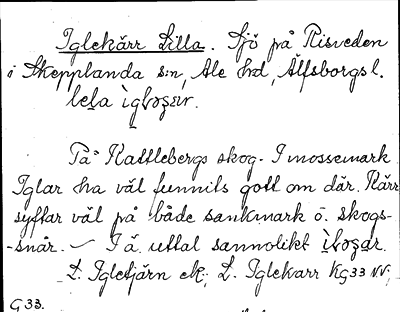 Iglekärr Lilla. Sjö på Risveden
i Skepplanda sn, Ale hd, Älfsborgs l.
På Kattlebergs skog. I mossemark
Iglar ha väl funnits gott om där. Kärr
syftar väl på både sankmark o. skogs-
-snår. — I ä uttal sannolikt
L. Igletjärn ek; L. Iglekarr KG33 NV;
G33.